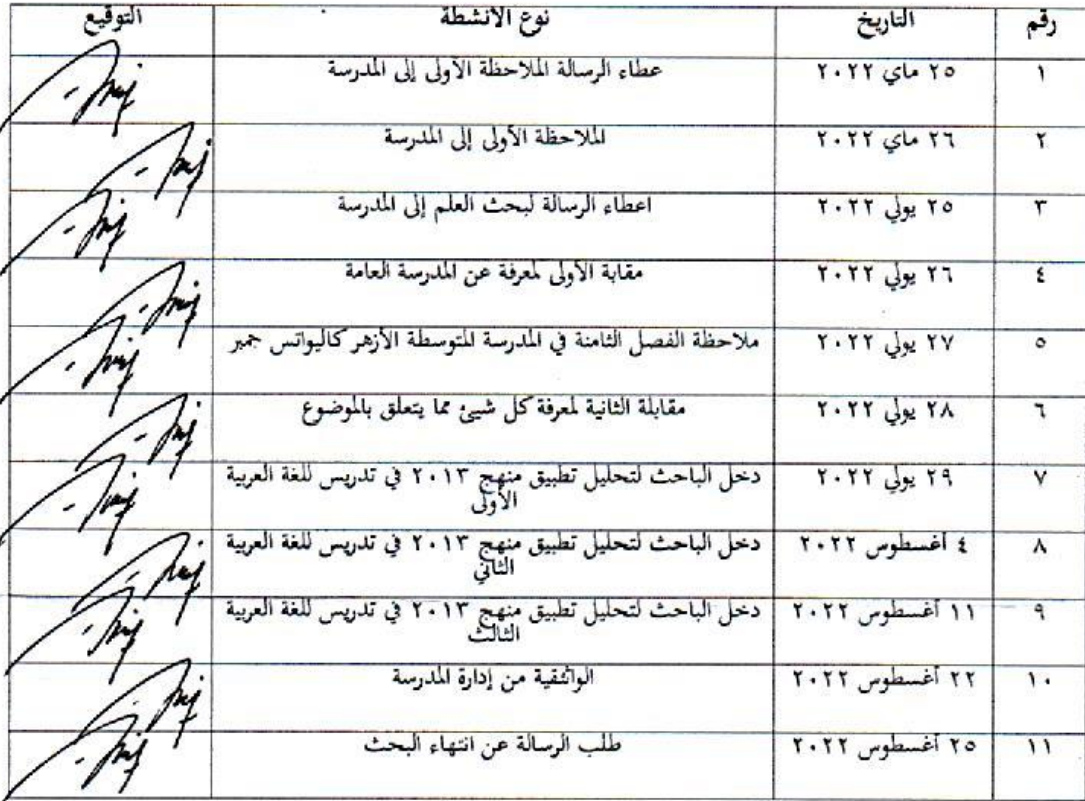 رقم التاريخ نوع الأنشطة التوقيع
١ ٢٥ ماي ٢٠٢٢ عطاء الرسالة الملاحظة الأولى إلى المدرسة
٢ ٢٦ ماي ٢٠٢٢ الملاحظة الأولى إلى المدرسة
٣ ٢٥ يولي ٢٠٢٢ اعطاء الرسالة لبحث العلم إلى المدرسة
٤ ٢٦ يولي ٢٠٢٢ مقابة الأولى لمعرفة عن المدرسة العامة
٥ ٢٧ يولي ٢٠٢٢ ملاحظة الفصل الثامنة في المدرسة المتوسطة الأزهر كاليواتس جمبر
٦ ٢٨ يولي ٢٠٢٢ مقابلة الثانية لمعرفة كل شيئ مما يتعلق بالموضوع
٧ ٢٩ يولي ٢٠٢٢ دخل الباحث لتحليل تطبيق منهج ٢٠١٣ في تدريس للغة العربية
الأولى
٨ ٤ أغسطوس ٢٠٢٢ دخل الباحث لتحليل تطبيق منهج ٢٠١٣ في تدريس للغة العربية
الثاني
٩ ١١ أغسطوس ٢٠٢٢ دخل الباحث لتحليل تطبيق منهج ٢٠١٣ في تدريس للغة العربية
الثالث
١٠ ٢٢ أغسطوس ٢٠٢٢ الواثقية من إدارة المدرسة
١١ ٢٥ أغسطوس ٢٠٢٢ طلب الرسالة عن انتهاء البحث